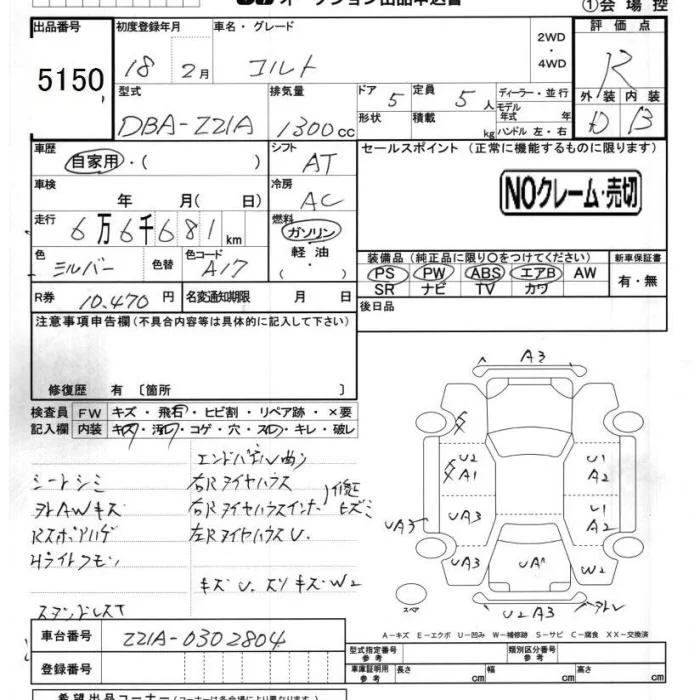 オークション出品申込書
①会場控
出品番号 初度登録年月 車名・グレード 2WD・4WD 評価点
5150 18 2月 コルト R
型式 排気量 ドア 定員 ディーラー・並行 外装 内装
DBA-Z21A 1300cc 5 5人 モデル年式 年 D B
形状 積載 kg ハンドル 左・右
車歴 シフト セールスポイント (正常に機能するものに限ります)
自家用・( ) AT
車検 冷房
年 月( 日) AC NOクレーム・売切
走行 燃料
6万6千681km ガソリン
軽油
・( )
色 色替 色コード 装備品 (純正品に限り○をつけてください) 新車保証書
シルバー A17 PS PW ABS エアB AW 有・無
SR ナビ TV カワ
R券 10,470円 名変通知期限 月 日 後日品
注意事項申告欄 (不具合内容等は具体的に記入して下さい)
修復歴 有 〔箇所 〕
検査員 FW キズ・飛石・ヒビ割・リペア跡・×要
記入欄 内装 キズ・汚れ・コゲ・穴・スレ・キレ・破レ
エンドパネル曲り
シートシミ 右Rタイヤハウス
外AWキズ 右Rタイヤハウスインナー 修正ヒズミ
Rスポイハゲ 左RタイヤハウスU.
Hライトクモリ
キズ U. スリキズ W2
A3
U2 A1
U1 A2
UA3
UA3
U1 A2
UA3
UA
W2
スペア
U2A3
外レ
A−キズ E−エクボ U−凹み W−補修跡 S−サビ C−腐食 XX−交換済
車台番号 Z21A-0302804 型式指定番号 参考 類別区分番号 参考
登録番号 車庫証明用 参考 長さ cm 幅 cm 高さ cm
希望出品コーナー (コーナーは各会場により異なります)